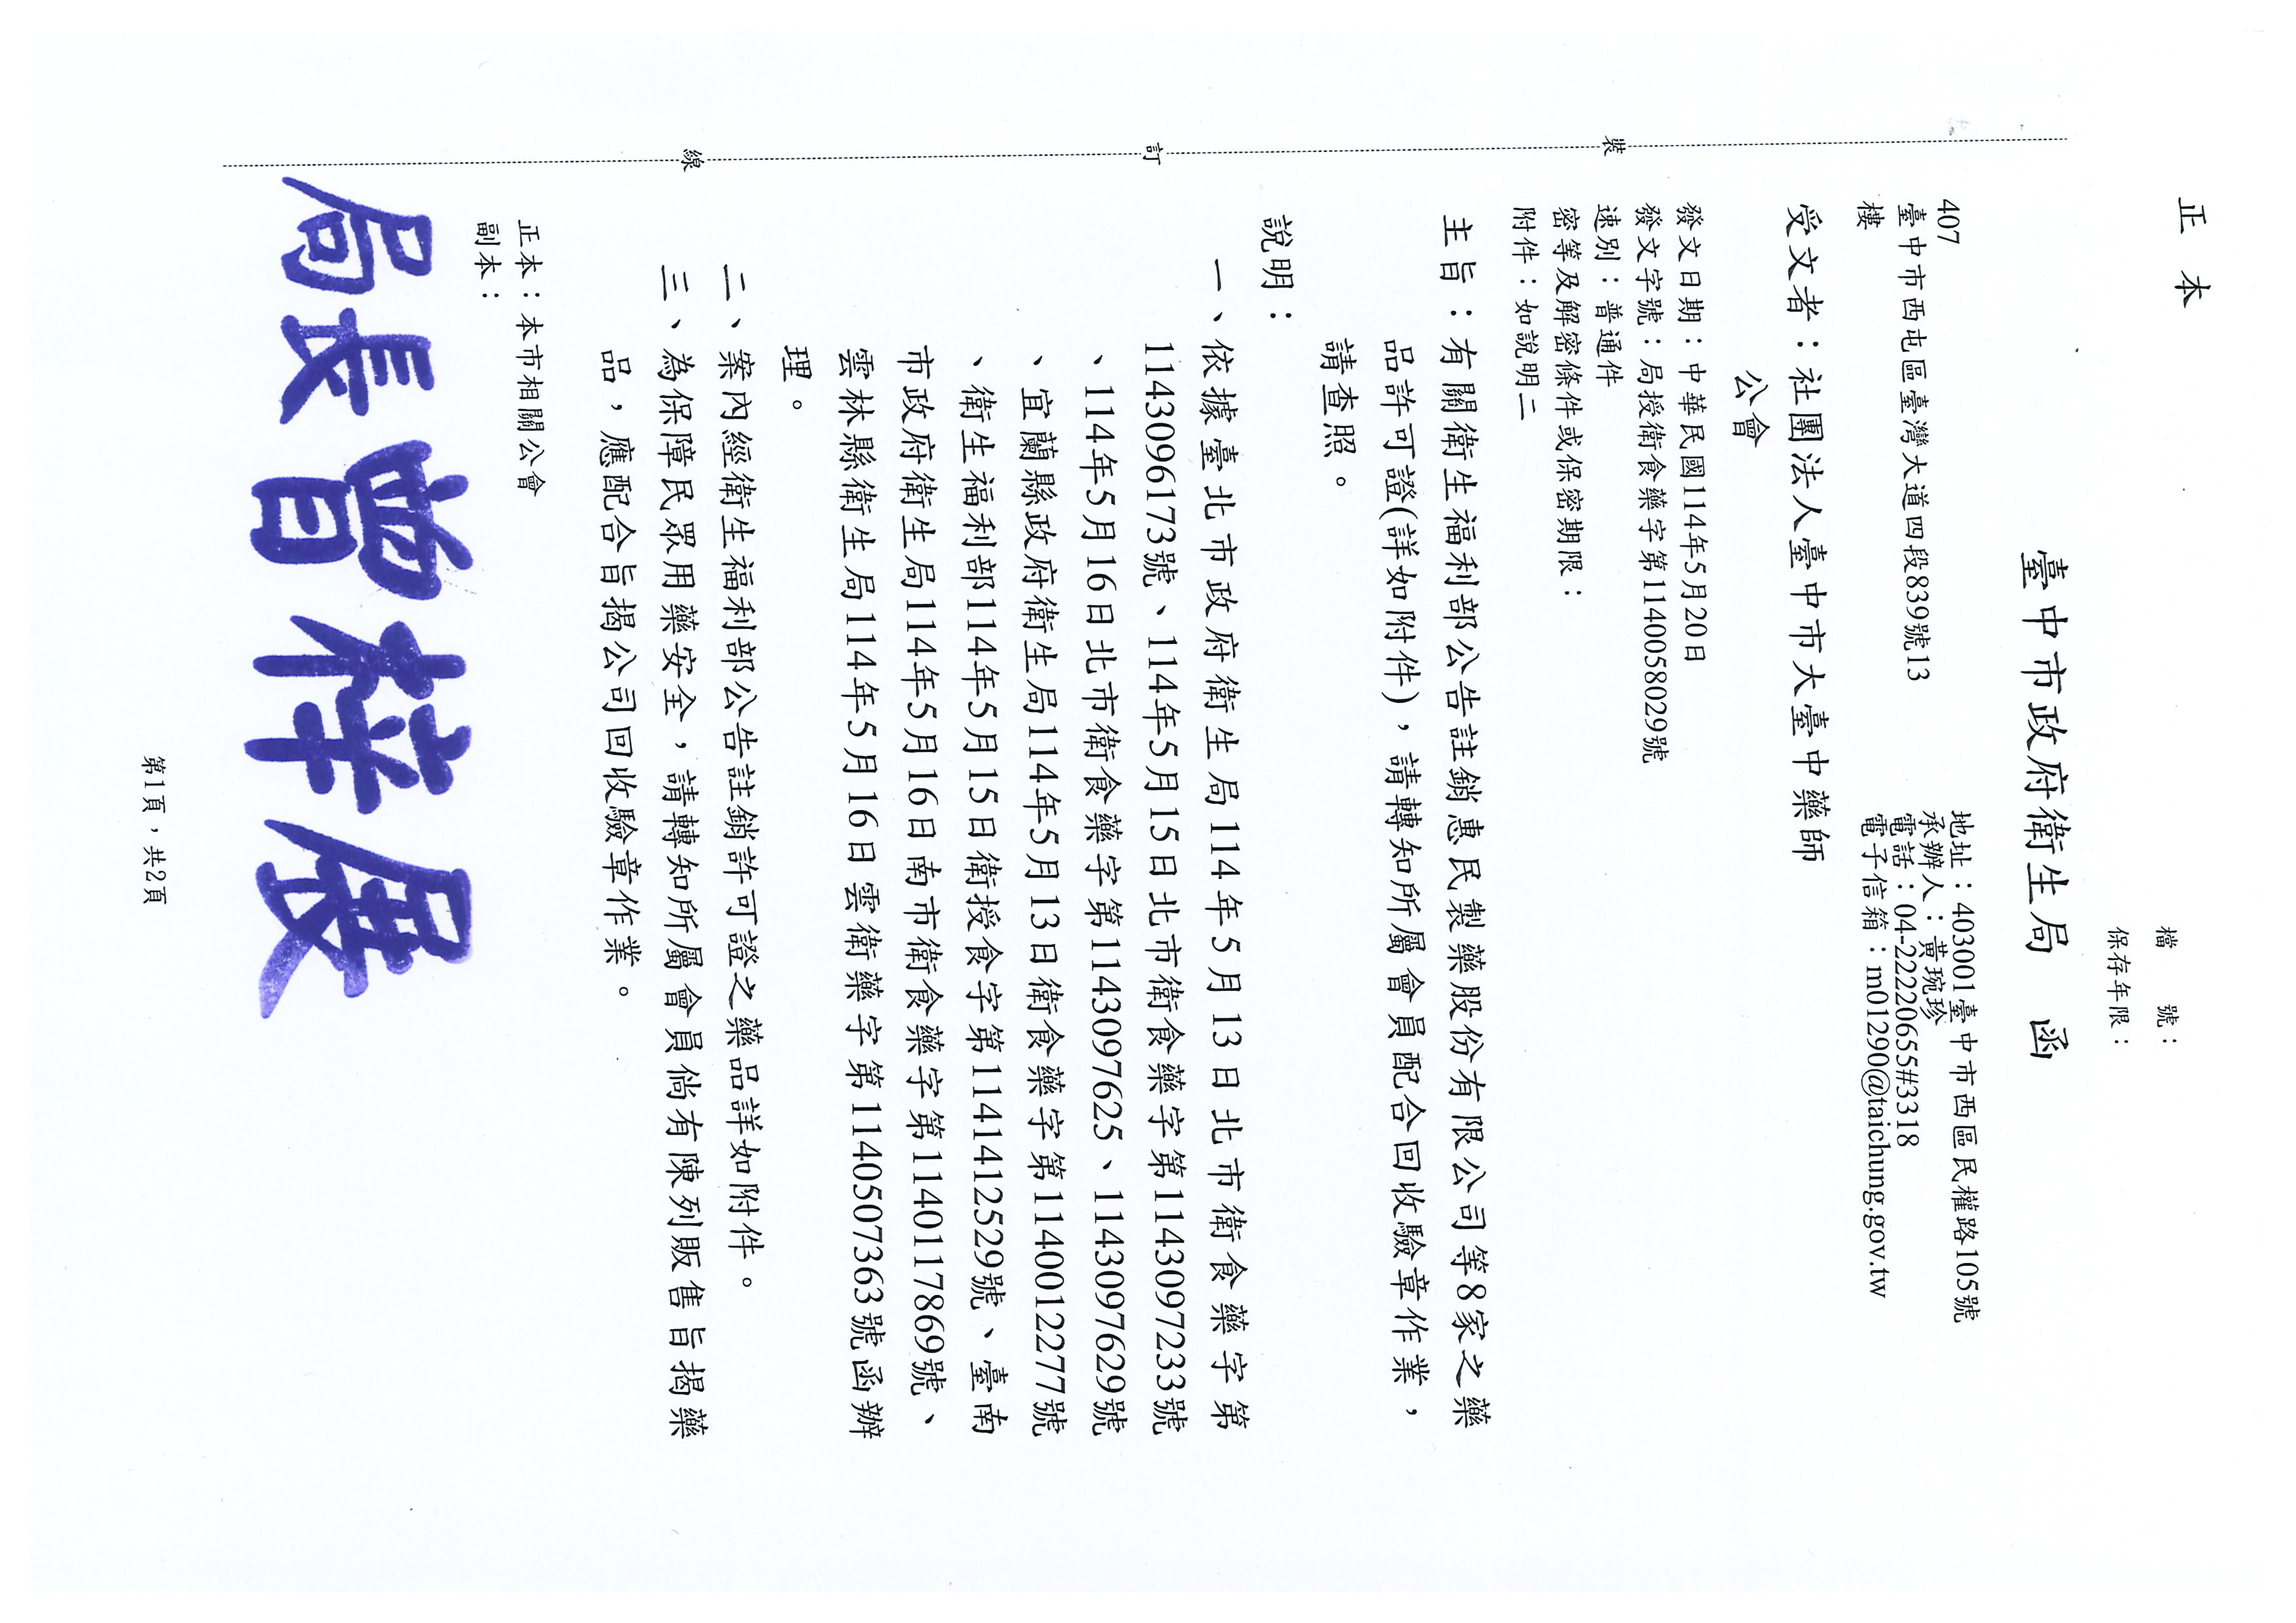 正本
檔　　號：
保存年限：
臺中市政府衛生局　函
地址：403001臺中市西區民權路105號
承辦人：黃琬珍
電話：04-22220655#3318
電子信箱：m01290@taichung.gov.tw
407
臺中市西屯區臺灣大道四段839號13
樓
受文者：社團法人臺中市大臺中藥師
公會
發文日期：中華民國114年5月20日
發文字號：局授衛食藥字第1140058029號
速別：普通件
密等及解密條件或保密期限：
附件：如說明二
主旨：有關衛生福利部公告註銷惠民製藥股份有限公司等8家之藥
品許可證(詳如附件)，請轉知所屬會員配合回收驗章作業，
請查照。
說明：
一、依據臺北市政府衛生局114年5月13日北市衛食藥字第
1143096173號、114年5月15日北市衛食藥字第1143097233號
、114年5月16日北市衛食藥字第1143097625、1143097629號
、宜蘭縣政府衛生局114年5月13日衛食藥字第1140012277號
、衛生福利部114年5月15日衛授食字第1141412529號、臺南
市政府衛生局114年5月16日南市衛食藥字第1140117869號、
雲林縣衛生局114年5月16日雲衛藥字第1140507363號函辦
理。
二、案內經衛生福利部公告註銷許可證之藥品詳如附件。
三、為保障民眾用藥安全，請轉知所屬會員倘有陳列販售旨揭藥
品，應配合旨揭公司回收驗章作業。
正本：本市相關公會
副本：
局長曾梓展
第1頁，共2頁
裝
訂
線